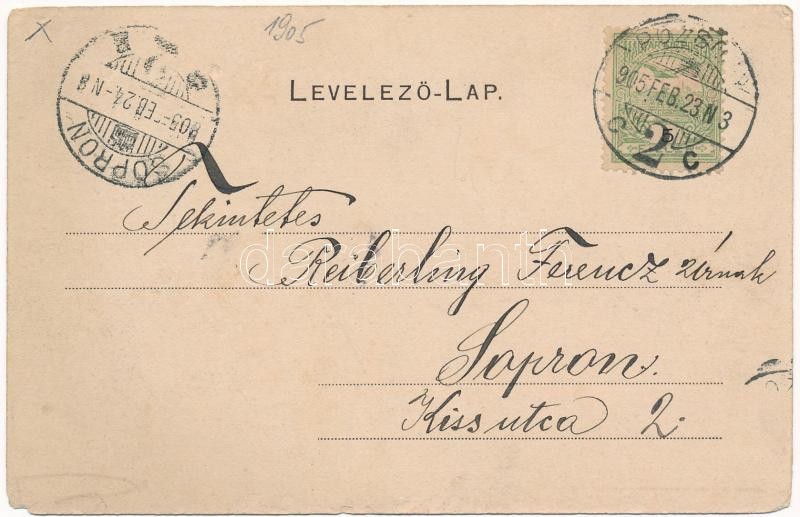 1905
LEVELEZŐ-LAP.
SOPRON
905 FEB. 24. N 8
905 FEB. 23. N 3
2
C C
5
Tekintetes
Reiberling Ferencz úrnak
Sopron.
Kiss utca 2.
darabanth